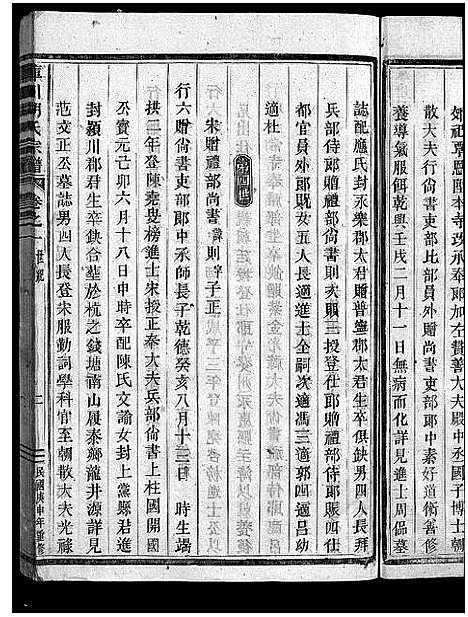 如祖覃恩匭本寺改承奉郎加右贊善大夫殿中國子博士朝
散大夫行尚書比部員外贈尚書吏部郎中素好道術善修
養導氣服餌乾興壬戌二月十一日無病而化詳見進士周偘墓
誌配應氏封永樂郡太君贈普寧郡太君生卒俱缺男四人長拜
兵部侍郎贈尚書次則次三授登仕郎贈禮部侍郎賜四仕
都官員外郎賜友女五人長適進士全嗣次適馮三適郭四適呂幼
適杜
宋贈禮部尚書諱則字子正
行六贈尚書吏部郎中承師長子乾德癸亥八月十三日 時生端
拱二年登陳堯叟榜進士宋授正奉大夫兵部尚書上柱國開國
丕寶元己卯六月十八日申時卒配陳氏文諭女封上黨縣君進
封潁川郡君生卒缺合塟於杭之錢塘南山履泰鄉龍井源詳見
范文正丕墓誌男四人長登宋服勤詞學科官至朝散大夫光祿
庫川胡氏宗譜 卷之一 世系
民國庚申年重修